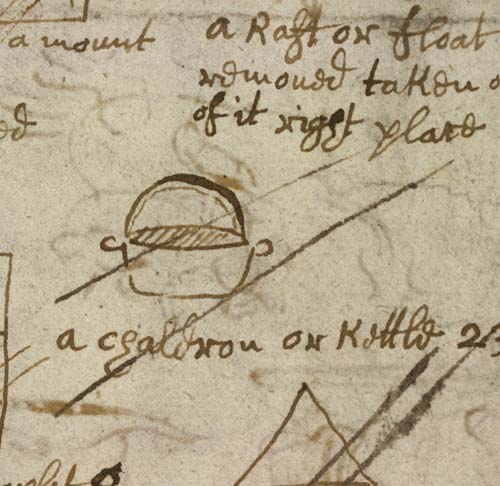 a mount
a Raft or float
removed taken o
of it right place
ed
a Chaldron or Kettle 23